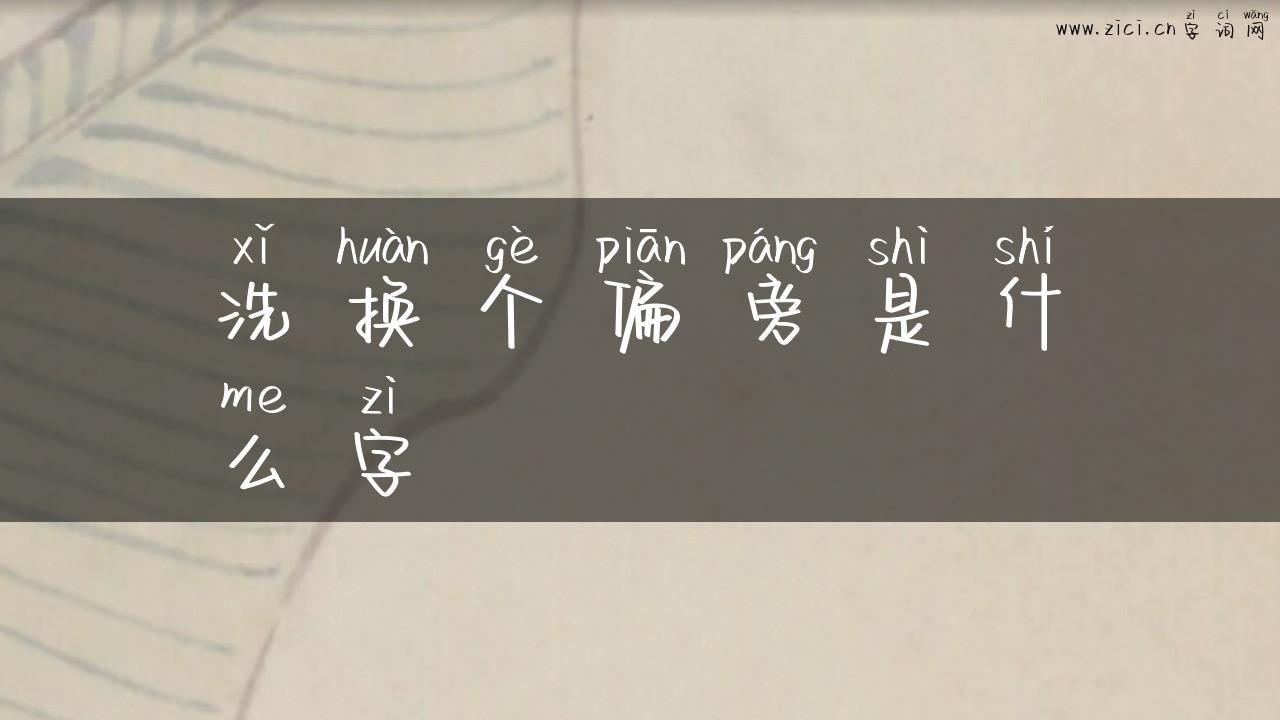 zì cí wǎng
www.zici.cn 字词网
xǐ huàn gè piān páng shì shí
洗换个偏旁是什
me zì
么字